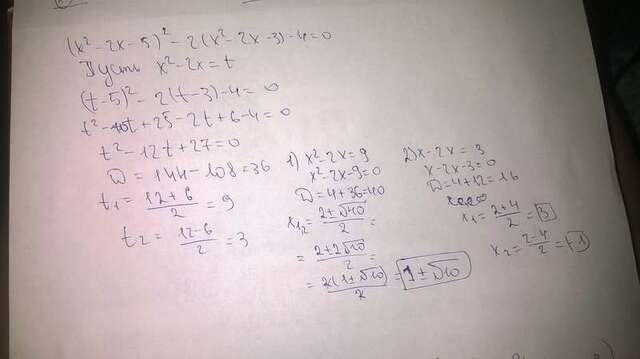 (x² - 2x - 5)² - 2(x² - 2x - 3) - 4 = 0
Пусть x² - 2x = t
(t - 5)² - 2(t - 3) - 4 = 0
t² - 10t + 25 - 2t + 6 - 4 = 0
t² - 12t + 27 = 0
D = 144 - 108 = 36
t₁ = (12 + 6)/2 = 9
t₂ = (12 - 6)/2 = 3
1) x² - 2x = 9
x² - 2x - 9 = 0
D = 4 + 36 = 40
x₁,₂ = (2 ± √40)/2 =
= (2 ± 2√10)/2 =
= 2(1 ± √10)/2 = 1 ± √10
2) x - 2x = 3
x - 2x - 3 = 0
D = 4 + 12 = 16
x₁ = (2 + 4)/2 = 3
x₂ = (2 - 4)/2 = -1